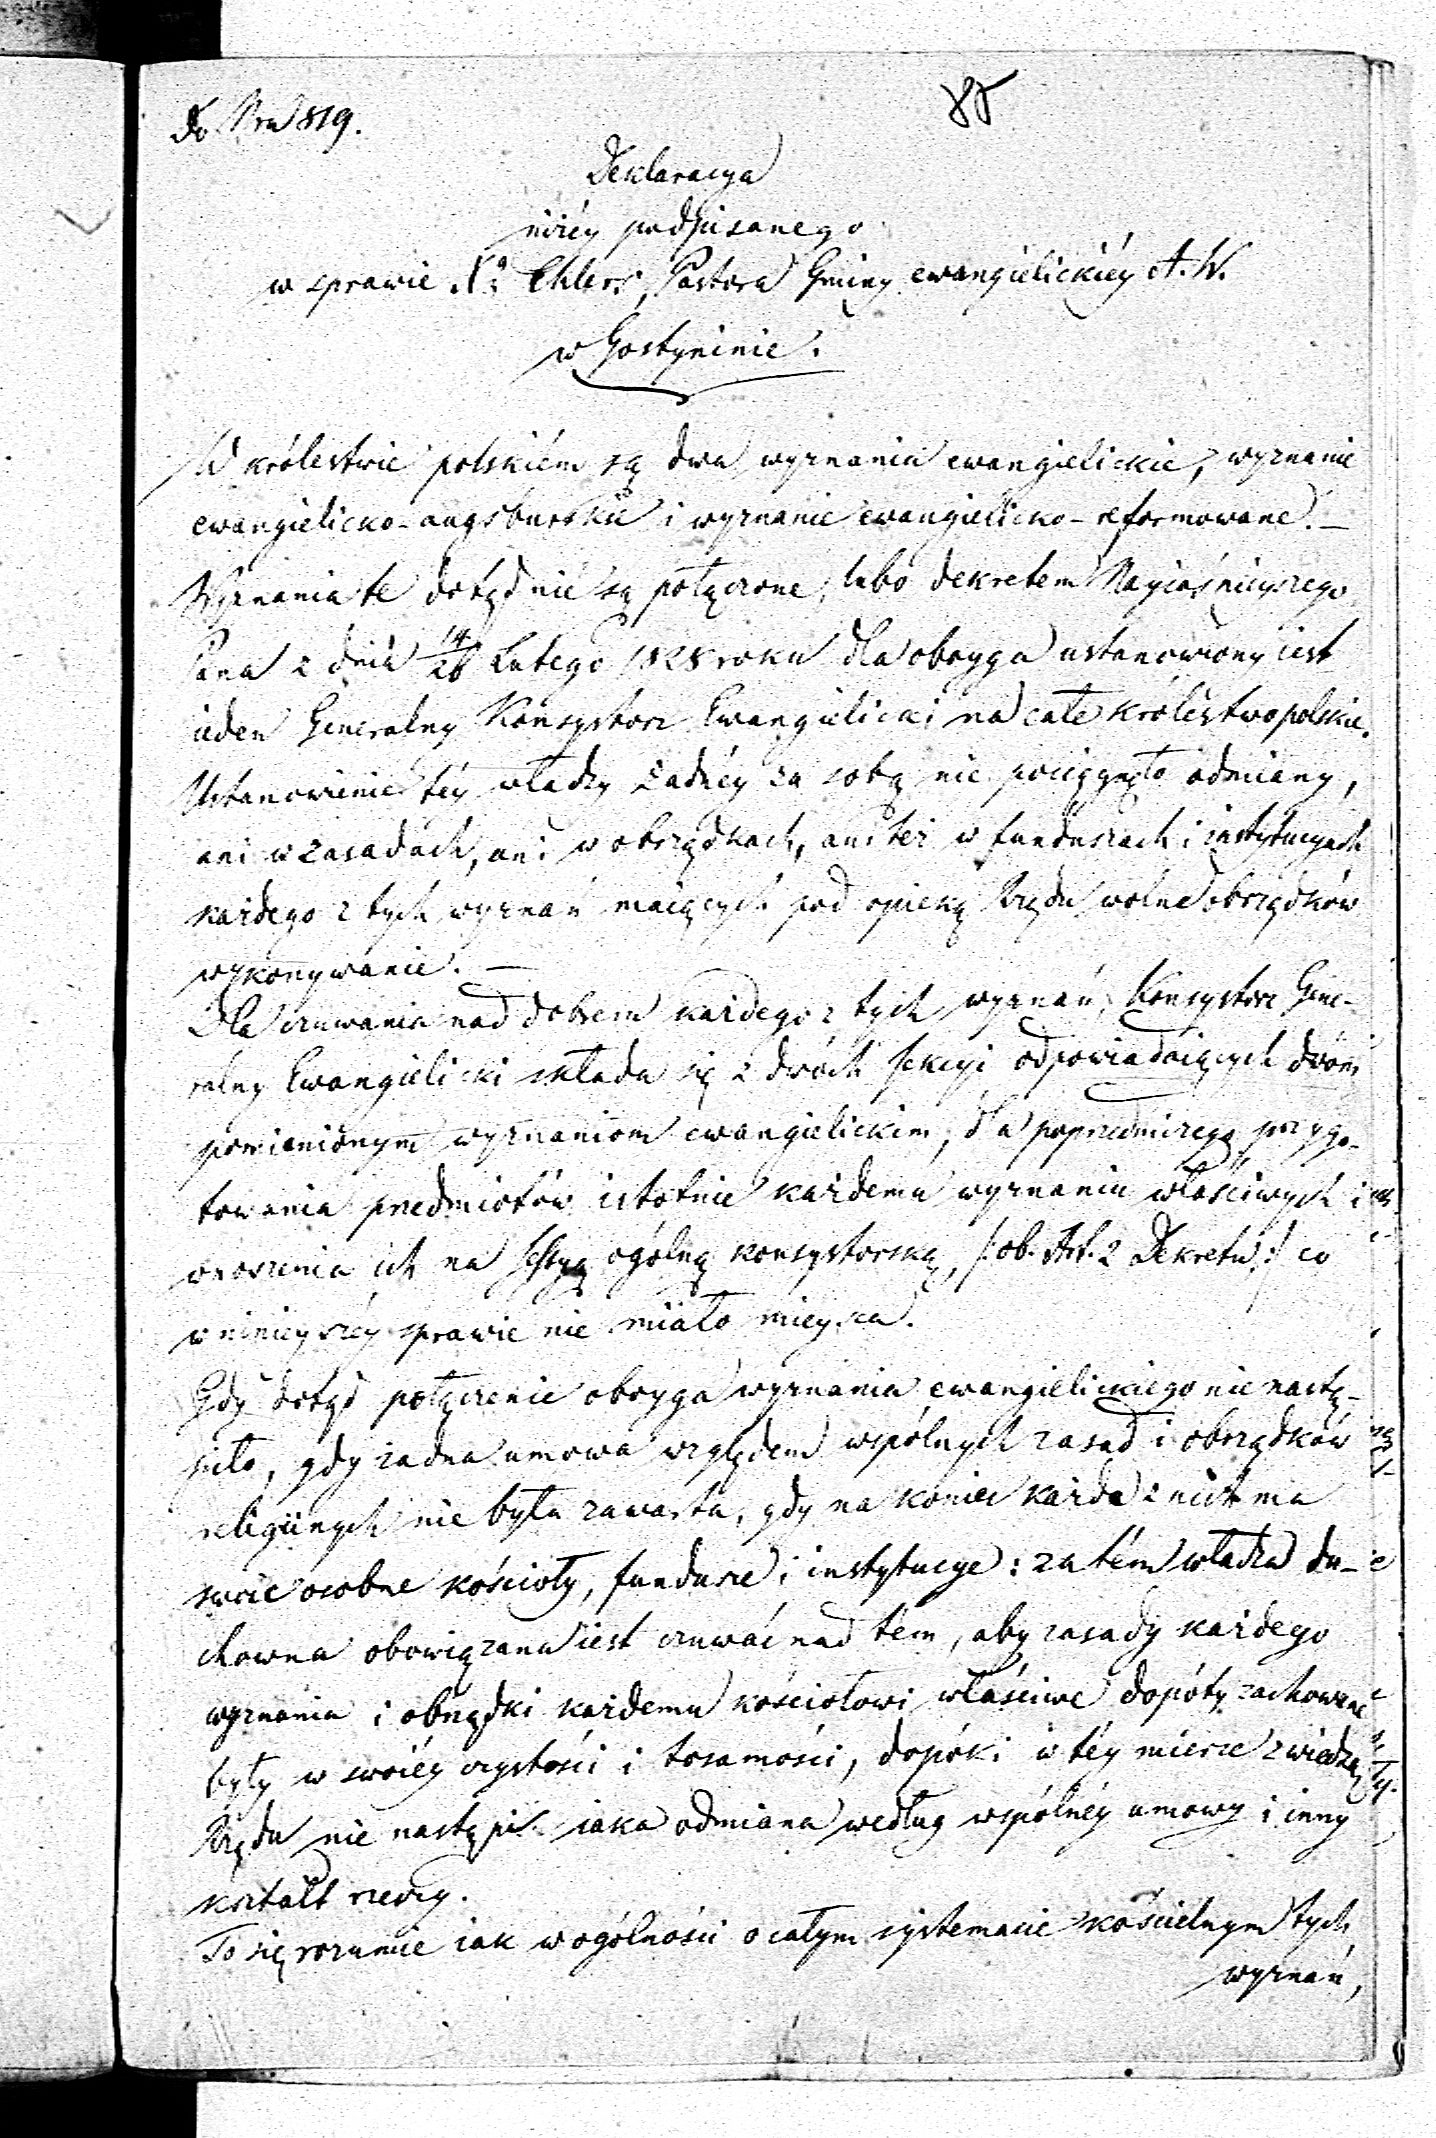 85
Do Nru 819.
Deklaracya
niżéy podpisanego
w sprawie X. Ehlers, Pastora Gminy ewangielickiéy A. W.
w Gostyninie.
W królestwie polskiém są dwa wyznania ewangielickie, wyznanie
ewangielicko-augsburskie i wyznanie ewangielicko-reformowane. —
Wyznania te dotąd nie są połączone, lubo dekretem Nayiaśnieyszego
Pana z dnia 14/26 Lutego 1828 roku dla oboyga ustanowiony iest
ieden Generalny Konsystorz Ewangielicki na całe królestwo polskie.
Ustanowienie téy władzy żadnéy za sobą nie pociągnęło odmiany,
ani w zasadach, ani w obrządkach, ani też w funduszach i instytucyach
każdego z tych wyznań maiących pod opieką Rządu wolne obrządków
wykonywanie. —
Dla czuwania nad dobrem każdego z tych wyznań, Konsystorz Gene-
ralny Ewangielicki składa się z dwóch sekcyi odpowiadaiących dwóm
pomienionym wyznaniom ewangielickim, dla poprzedniczego przygo-
towania przedmiotów istotnie każdemu wyznaniu właściwych i
wnoszenia ich na Sessyą ogólną konsystorską, /: ob. Art. 2 Dekretu :/ co
w ninieyszéy sprawie nie miało mieysca.
Gdy dotąd połączenie oboyga wyznania ewangielickiego nie nastą-
piło, gdy żadna umowa względem wspólnych zasad i obrządków
religiinych nie była zawarta, gdy na koniec każda z nich ma
swoie osobne kościoły, fundusze i instytucye: za tém władza du-
chowna obowiązana iest czuwać nad tem, aby zasady każdego
wyznania i obrządki każdemu kościołowi właściwe dopóty zachowane
były w swoiéy czystości i tosamości, dopóki w téy mierze z wiedzą
Rządu nie nastąpi iaka odmiana według wspólnéy umowy i inny
kształt rzeczy.
To się rozumie iak w ogólności o całym systemacie kościelnym tych
wyznań,